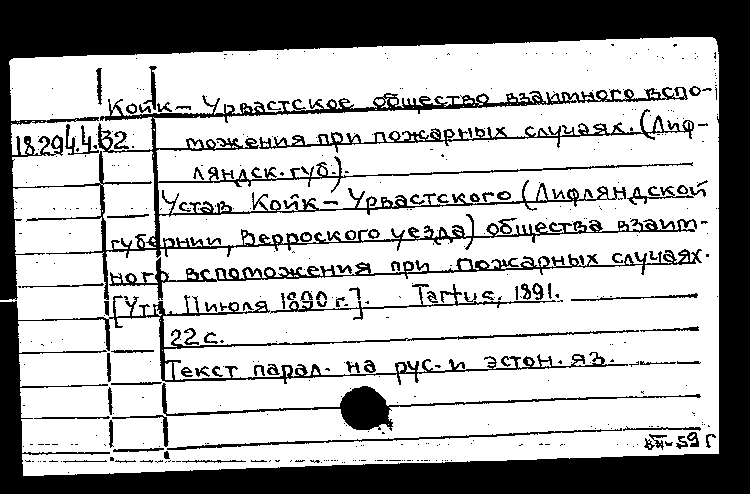 Койк-Урвастское общество взаимного вспо-
18.294.4.32. можения при пожарных случаях. (Лиф-
ляндск. губ.).
Устав Койк-Урвастского (Лифляндской
губернии, Верроского уезда) общества взаим-
ного вспоможения при пожарных случаях.
[Утв. 11 июля 1890 г.]. Tartus, 1891.
22 с.
Текст парал. на рус. и эстон. яз.
59 г